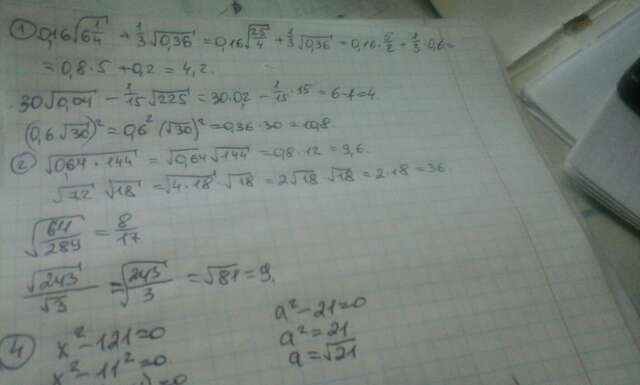 ① 0,16√6 1/4 + 1/3 √0,36 = 0,16√25/4 + 1/3 √0,36 = 0,16 · 5/2 + 1/3 · 0,6 =
= 0,8 · 5 + 0,2 = 4,2.
30√0,04 - 1/15 √225 = 30 · 0,2 - 1/15 · 15 = 6 - 1 = 4.
(0,6√30)² = 0,6² (√30)² = 0,36 · 30 = 10,8
② √0,64 · 144 = √0,64 √144 = 0,8 · 12 = 9,6.
√72 √18 = √4 · 18 · √18 = 2√18 · √18 = 2 · 18 = 36.
√64/289 = 8/17
√243/√3 = √243/3 = √81 = 9.
④ x² - 121 = 0
x² - 11² = 0
a² - 21 = 0
a² = 21
a = √21